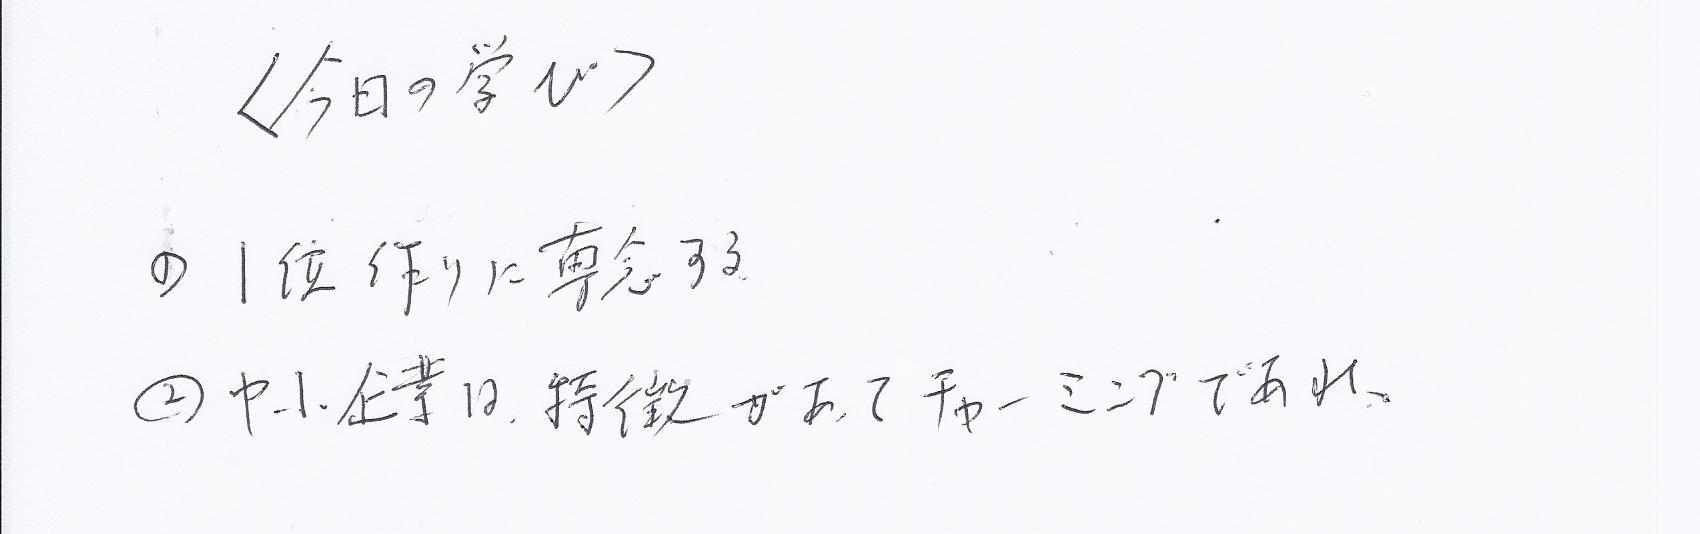 〈今日の学び〉
① 1位作りに専念する
② 中小企業は、特徴があってチャーミングであれ、